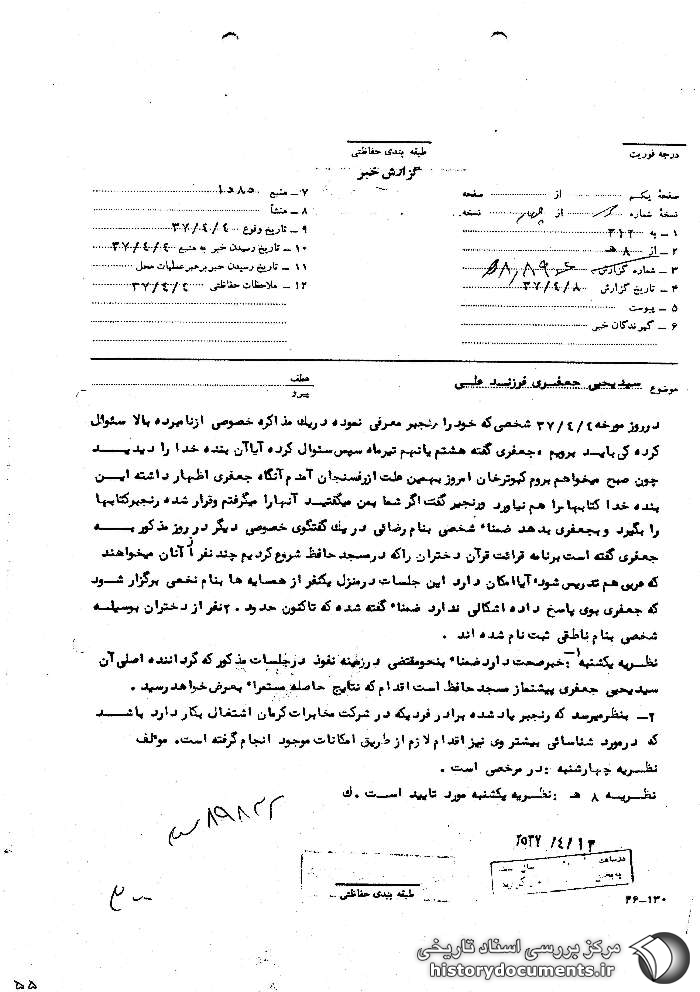 طبقه بندی حفاظتی
درجه فوریت
گزارش خبر
صفحهٔ یکم از صفحه
نسخهٔ شماره از چهار نسخه
۱ – به ۳۱۲
۲ – از ۸ هـ
۳ – شماره گزارش
۴ – تاریخ گزارش ۳۷/۴/۸
۵ – پیوست
۶ – گیرندگان خبر
۷ – منبع
۸ – منشأ
۹ – تاریخ وقوع ۳۷/۴/۴
۱۰ – تاریخ رسیدن خبر به منبع ۳۷/۴/۴
۱۱ – تاریخ رسیدن خبر برهبر عملیات محل
۱۲ – ملاحظات حفاظتی ۳۷/۴/۴
موضوع سیدیحیی جعفری فرزند علی
عطف
پیرو
درروز مورخه ۳۷/۴/۴ شخصی که خودرا رنجبر معرفی نموده دریك مذاکره خصوصی ازنامبرده بالا سئوال
کرده کی باید برویم ، جعفری گفته هشتم یانهم تیرماه سپس سئوال کرده آیاآن بنده خدا را دیدید
چون صبح میخواهم بروم کبوترخان امروز بهمین علت ازرفسنجان آمدم آنگاه جعفری اظهار داشته این
بنده خدا کتابهارا هم نیاورد ورنجبر گفت اگر شما بمن میگفتید آنهارا میگرفتم وقرار شده رنجبرکتابها
را بگیرد و بجعفری بدهد ضمناً شخصی بنام رضائی دریك گفتگوی خصوصی دیگر در روز مذکور به
جعفری گفته است برنامه قرائت قرآن دختران راکه درمسجد حافظ شروع کردیم چند نفر از آنان میخواهند
که عربی هم تدریس شود آیاامکان دارد این جلسات درمنزل یکنفر از همسایه ها بنام نخعی برگزار شود
که جعفری بوی پاسخ داده اشکالی ندارد ضمناً گفته شده که تاکنون حدود ۲۰نفر از دختران بوسیله
شخصی بنام ناطقی ثبت نام شده اند .
نظریه یکشنبه ۱– خبرصحت دارد ضمناً بنحومقتضی درزمینه نفوذ درجلسات مذکور که گرداننده اصلی آن
سیدیحیی جعفری پیشنماز مسجد حافظ است اقدام که نتایج حاصله مستمراً بعرض خواهد رسید .
۲– بنظرمیرسد که رنجبر یاد شده برادر فردیکه در شرکت مخابرات کرمان اشتغال بکار دارد باشد
که درمورد شناسائی بیشتر وی نیز اقدام لازم از طریق امکانات موجود انجام گرفته است. موظف
نظریه چهارشنبه : در مرخصی است .
نظریه ۸ هـ : نظریه یکشنبه مورد تایید است . ك
۸۹۸۲۲
۲۵۳۷/۴/۱۳
طبقه بندی حفاظتی
۳۶–۱۳۰
مرکز بررسی اسناد تاریخی
historydocuments.ir